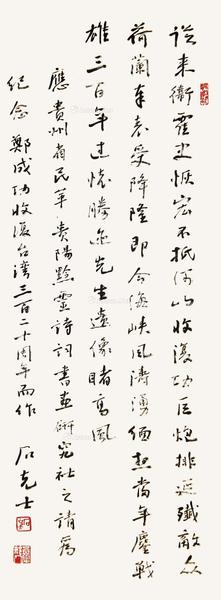 從来衛霍史恢宏不抵河山收復功巨炮排殲敵众
荷蘭奉表受降隆即今海峡風濤湧緬想當年鏖戰
雄三百年过懷勝迹先生遺像睹高風
應貴州省民革貴陽黔靈詩詞書画研究社之請為
纪念 鄭成功收復台灣三百二十周年而作 石克士